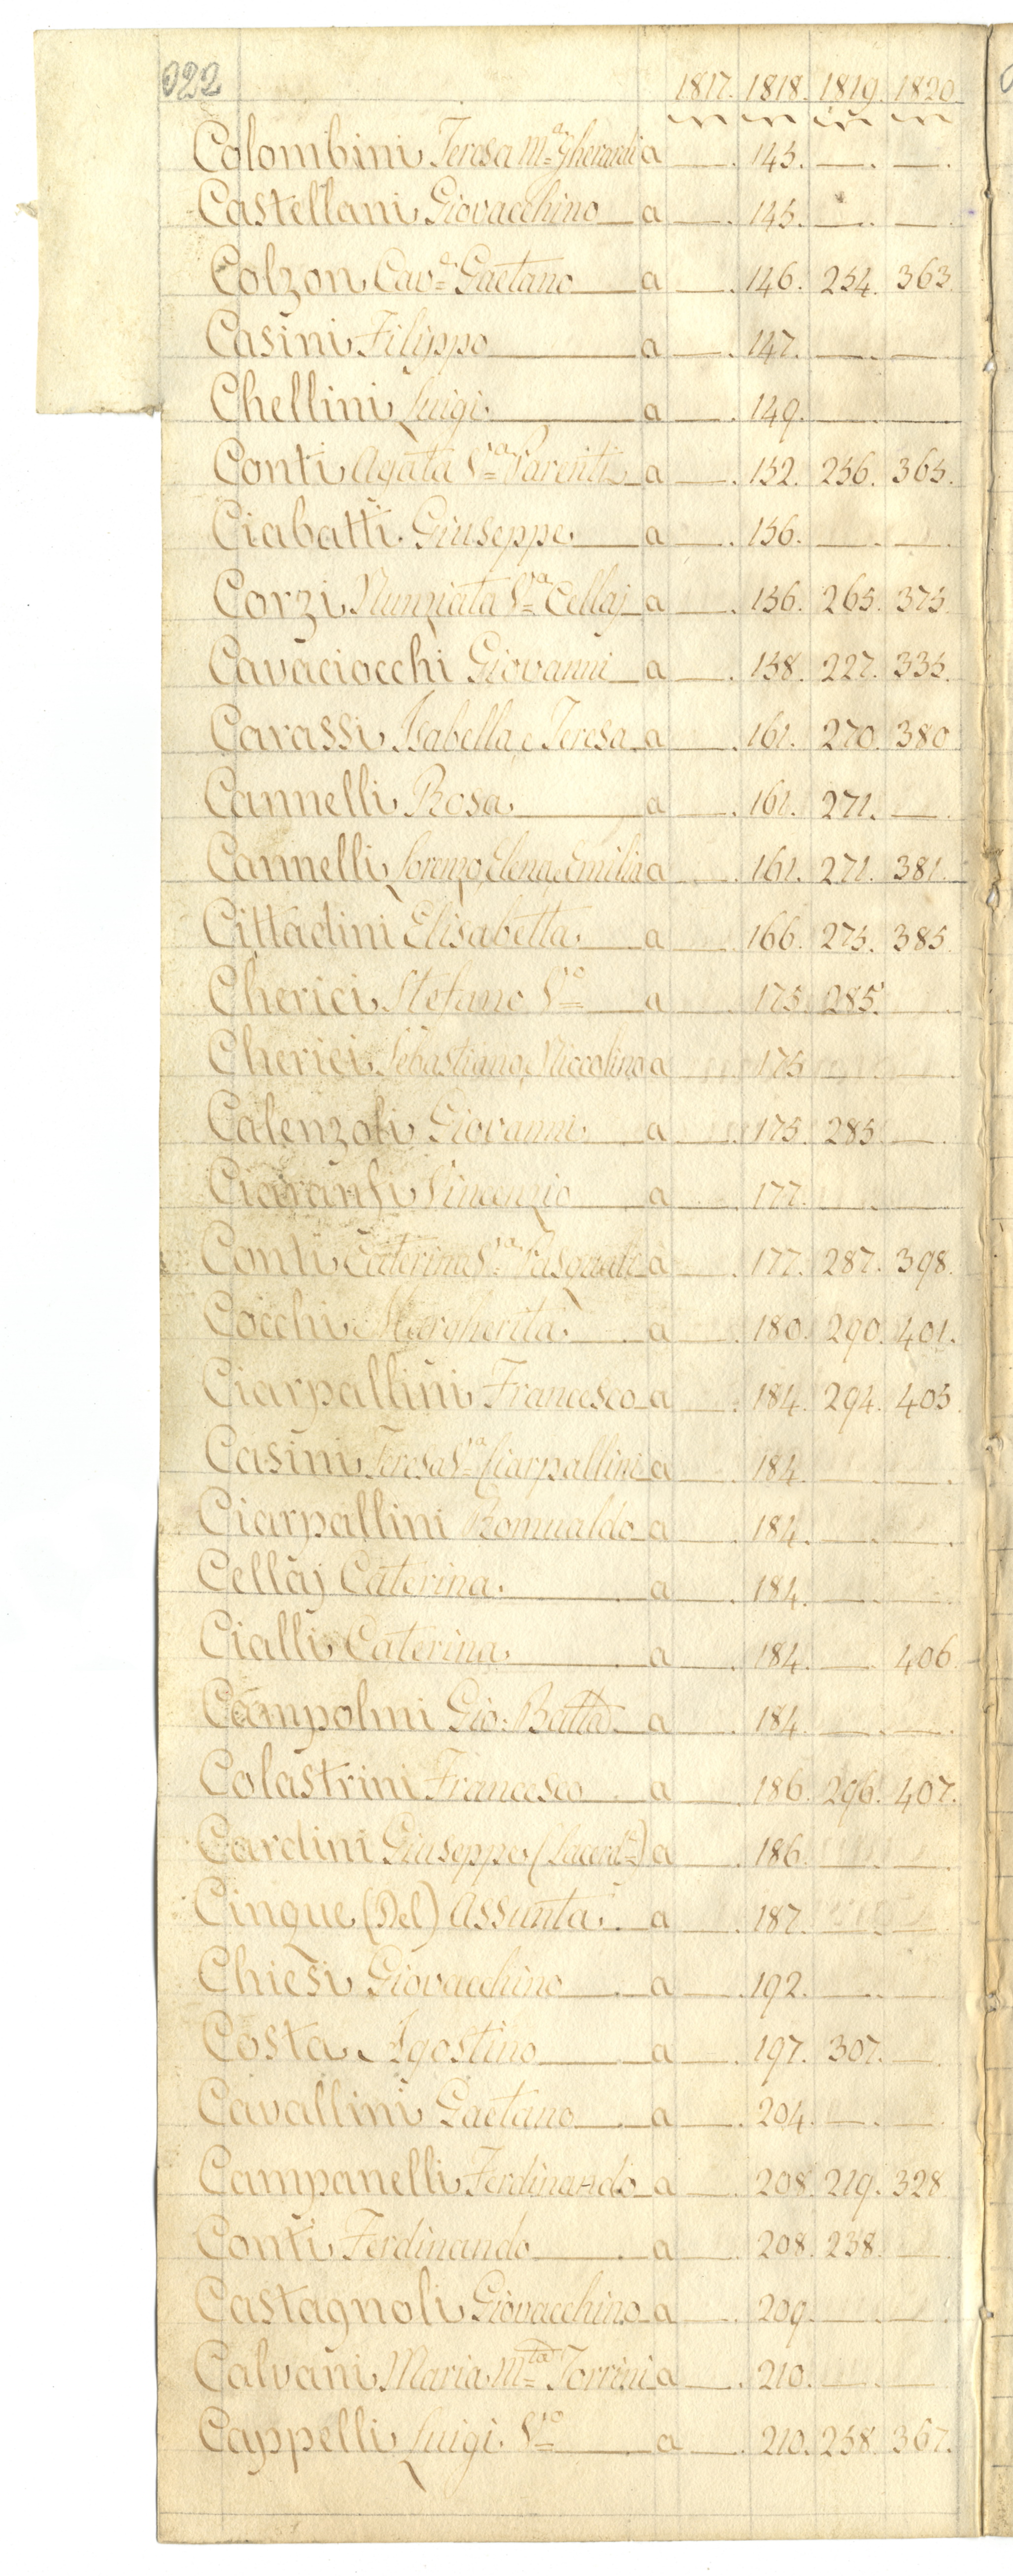 022 1817. 1818. 1819. 1820.
Colombini Teresa Mª Gherardi a —. 145. —. —.
Castellani Giovacchino a —. 145. —. —.
Colzon Cavʳ Gaetano a —. 146. 254. 363.
Casini Filippo a —. 147. —. —.
Chellini Luigi a —. 149. — —
Conti Agata Vª Parenti a —. 152. 256. 365.
Ciabatti Giuseppe a —. 156. —. —.
Corzi Nunziata Vª Cellaj a —. 156. 265. 375.
Cavaciocchi Giovanni a —. 158. 227. 335.
Carassi Isabella, e Teresa a —. 161. 270. 380
Cannelli Rosa a —. 161. 271. —.
Cannelli Lorenzo, Elena, Emilia a —. 161. 271. 381.
Cittadini Elisabetta a —. 166. 275. 385
Cherici Stefano Vº a —. 175. 285. —.
Cherici Sebastiano, Niccolino a —. 175 — —.
Calenzoli Giovanni a —. 175. 285 —.
Ciaranfi Vincenzio a —. 177. —. —.
Conti Caterina Vª Pasquali a —. 177. 287. 398.
Cocchi Margherita a —. 180. 290. 401.
Ciarpallini Francesco a —. 184. 294. 405.
Casini Teresa Vª Ciarpallini a —. 184. — —.
Ciarpallini Romualdo a —. 184. —. —.
Cellaj Caterina a —. 184. — —
Cialli Caterina a —. 184. —. 406
Campolmi Gio: Batta a —. 184. —. —.
Colastrini Francesco a —. 186. 296. 407.
Cardini Giuseppe (Sacerdᵉ) a —. 186. — —.
Cinque (Del) Assunta a —. 187. —. —
Chiesi Giovacchino a —. 192. —. —
Costa Agostino a —. 197. 307. —.
Cavallini Gaetano a —. 204. —. —.
Campanelli Ferdinando a —. 208. 219. 328
Conti Ferdinando a —. 208. 238. —.
Castagnoli Giovacchino a —. 209. —. —.
Calvani Maria Mᵗᵃ Torrini a —. 210. — —.
Cappelli Luigi Vº a —. 210. 258. 367.